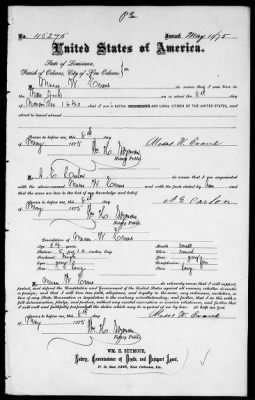 No 46275 Issued May 11/75
United States of America.
State of Louisiana,
Parish of Orleans, City of New Orleans. } ss.
I, Moses W. Evans do swear that I was born in
New York on or about the 8th
November 1840 am a NATIVE and LOYAL CITIZEN OF THE UNITED STATES, and
about to travel abroad
Sworn to before me, this 8th
May 1875 Wm H. Seymour Moses W. Evans
Notary Public
I, A E Carlon do swear that I am acquainted
with the above-named Moses W. Evans and with the facts stated by him
Sworn to before me, this 8th
May 1875 Wm H. Seymour A E Carlon
Notary Public
Description of Moses W. Evans
Age: 34 years Mouth: small
Stature: 5 feet inches, Eng. Chin: round
Forehead: high Hair: gray
Eyes: gray Complexion:
Nose: long Face: long
I, Moses W. Evans do solemnly swear that I will support,
protect, and defend the Constitution and Government of the United States against all enemies, whether domestic
or foreign; and that I will bear true faith, allegiance, and loyalty to the same, any ordinance, resolution, or law
of any State, Convention or Legislature to the contrary notwithstanding; and further, that I do this with a full
determination, pledge, and purpose, without any mental reservation or evasion whatsoever; and further, that I
will well and faithfully perform all the duties which may be required of me by law. So help me God.
Sworn to before me, this 8th Moses W. Evans
May 1875 Wm H. Seymour
Notary Public
WM. H. SEYMOUR,
Notary, Commissioner of Deeds, and Passport Agent,
New Orleans, La.